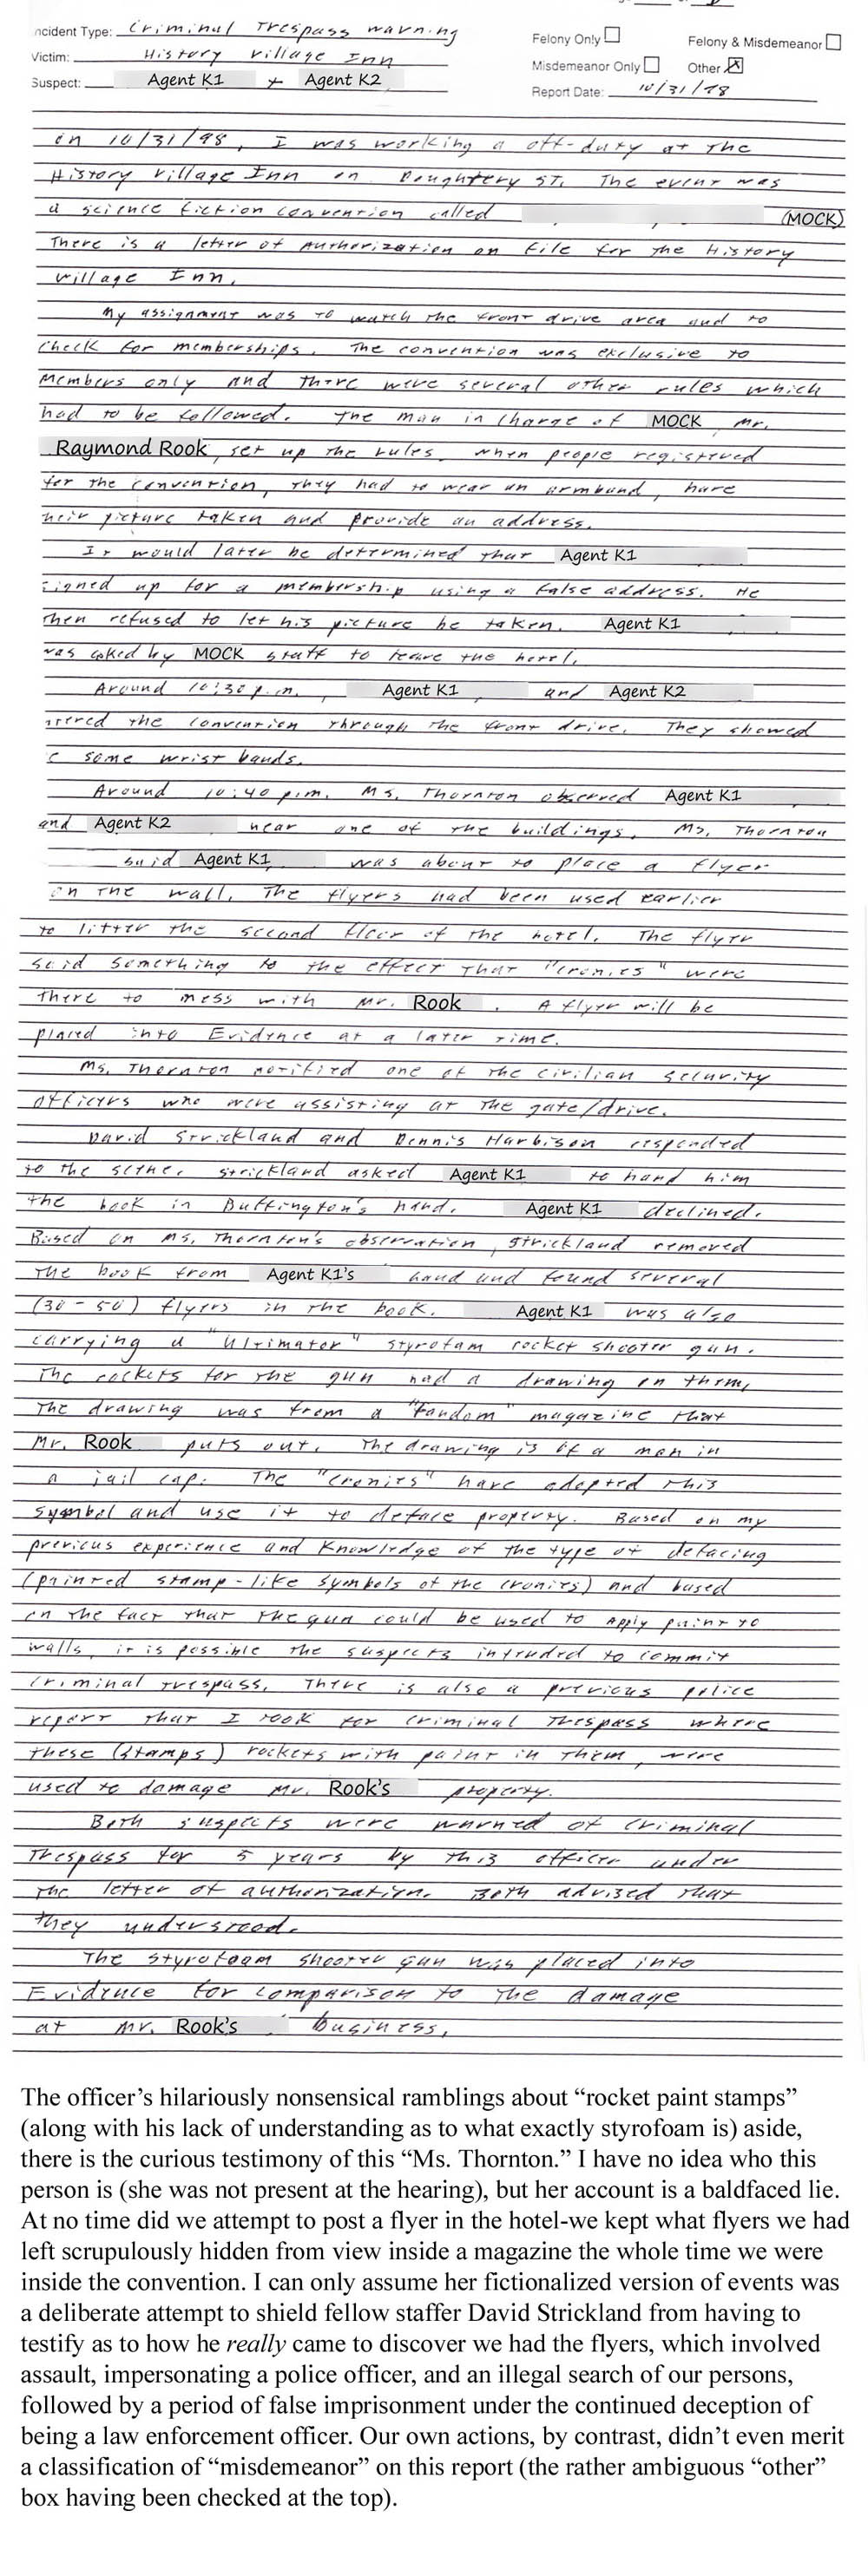 ncident Type: Criminal Trespass Warning
Felony Only
Felony & Misdemeanor
Victim: History Village Inn
Misdemeanor Only
Other
Suspect: Agent K1 + Agent K2
Report Date: 10/31/98
on 10/31/98, I was working a off-duty at the
History Village Inn on Doughtery ST. The event was
a science fiction convention called (MOCK)
There is a letter of Authorization on file for the History
Village Inn.
My assignment was to watch the front drive area and to
check for memberships. The convention was exclusive to
members only and there were several other rules which
had to be followed. The man in charge of MOCK, Mr.
Raymond Rook, set up the rules. When people registered
for the convention, they had to wear an armband, have
heir picture taken and provide an address.
It would later be determined that Agent K1
signed up for a membership using a false address. He
then refused to let his picture be taken. Agent K1
was asked by MOCK staff to leave the hotel.
Around 10:30 p.m., Agent K1 and Agent K2
ntered the convention through the front drive. They showed
e some wrist bands.
Around 10:40 p.m. Ms. Thornton observed Agent K1
and Agent K2 near one of the buildings. Ms. Thornton
said Agent K1 was about to place a flyer
on the wall. The flyers had been used earlier
to litter the second floor of the hotel. The flyer
said something to the effect that "cronies" were
there to mess with Mr. Rook. A flyer will be
placed into Evidence at a later time.
Ms. Thornton notified one of the civilian security
officers who were assisting at the gate/drive.
David Strickland and Dennis Harbison responded
to the scene. Strickland asked Agent K1 to hand him
the book in Buffington's hand. Agent K1 declined.
Based on Ms. Thornton's observation, Strickland removed
the book from Agent K1's hand and found several
(30-50) flyers in the book. Agent K1 was also
carrying a "Ultimator" styrofam rocket shooter gun.
The rockets for the gun had a drawing on them,
The drawing was from a "fandom" magazine that
Mr. Rook puts out. The drawing is of a man in
a jail cap. The "cronies" have adopted this
symbol and use it to deface property. Based on my
previous experience and knowledge of the type of defacing
(painted stamp-like symbols of the cronies) and based
on the fact that the gun could be used to apply paint to
walls, it is possible the suspects intended to commit
criminal trespass. There is also a previous police
report that I took for criminal Trespass where
these (stamps) rockets with paint in them, were
used to damage Mr. Rook's property.
Both suspects were warned of criminal
Trespass for 5 years by this officer under
the letter of authorization. Both advised that
they understood.
The styrofoam shooter gun was placed into
Evidence for comparison to the damage
at Mr. Rook's business,
The officer's hilariously nonsensical ramblings about “rocket paint stamps”
(along with his lack of understanding as to what exactly styrofoam is) aside,
there is the curious testimony of this “Ms. Thornton.” I have no idea who this
person is (she was not present at the hearing), but her account is a baldfaced lie.
At no time did we attempt to post a flyer in the hotel-we kept what flyers we had
left scrupulously hidden from view inside a magazine the whole time we were
inside the convention. I can only assume her fictionalized version of events was
a deliberate attempt to shield fellow staffer David Strickland from having to
testify as to how he really came to discover we had the flyers, which involved
assault, impersonating a police officer, and an illegal search of our persons,
followed by a period of false imprisonment under the continued deception of
being a law enforcement officer. Our own actions, by contrast, didn't even merit
a classification of “misdemeanor” on this report (the rather ambiguous “other”
box having been checked at the top).